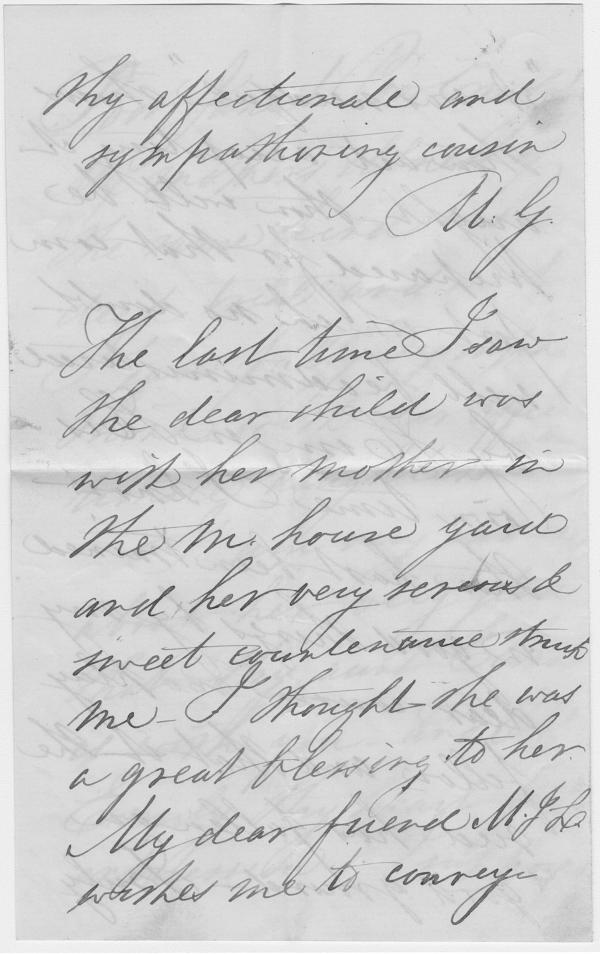 thy affectionate and
sympathising cousin
M. G.
The last time I saw
the dear child was
with her mother in
the M. house yard
and her very serious &
sweet countenance struck
me - I thought she was
a great blessing to her.
My dear friend M. J. L.
wishes me to convey